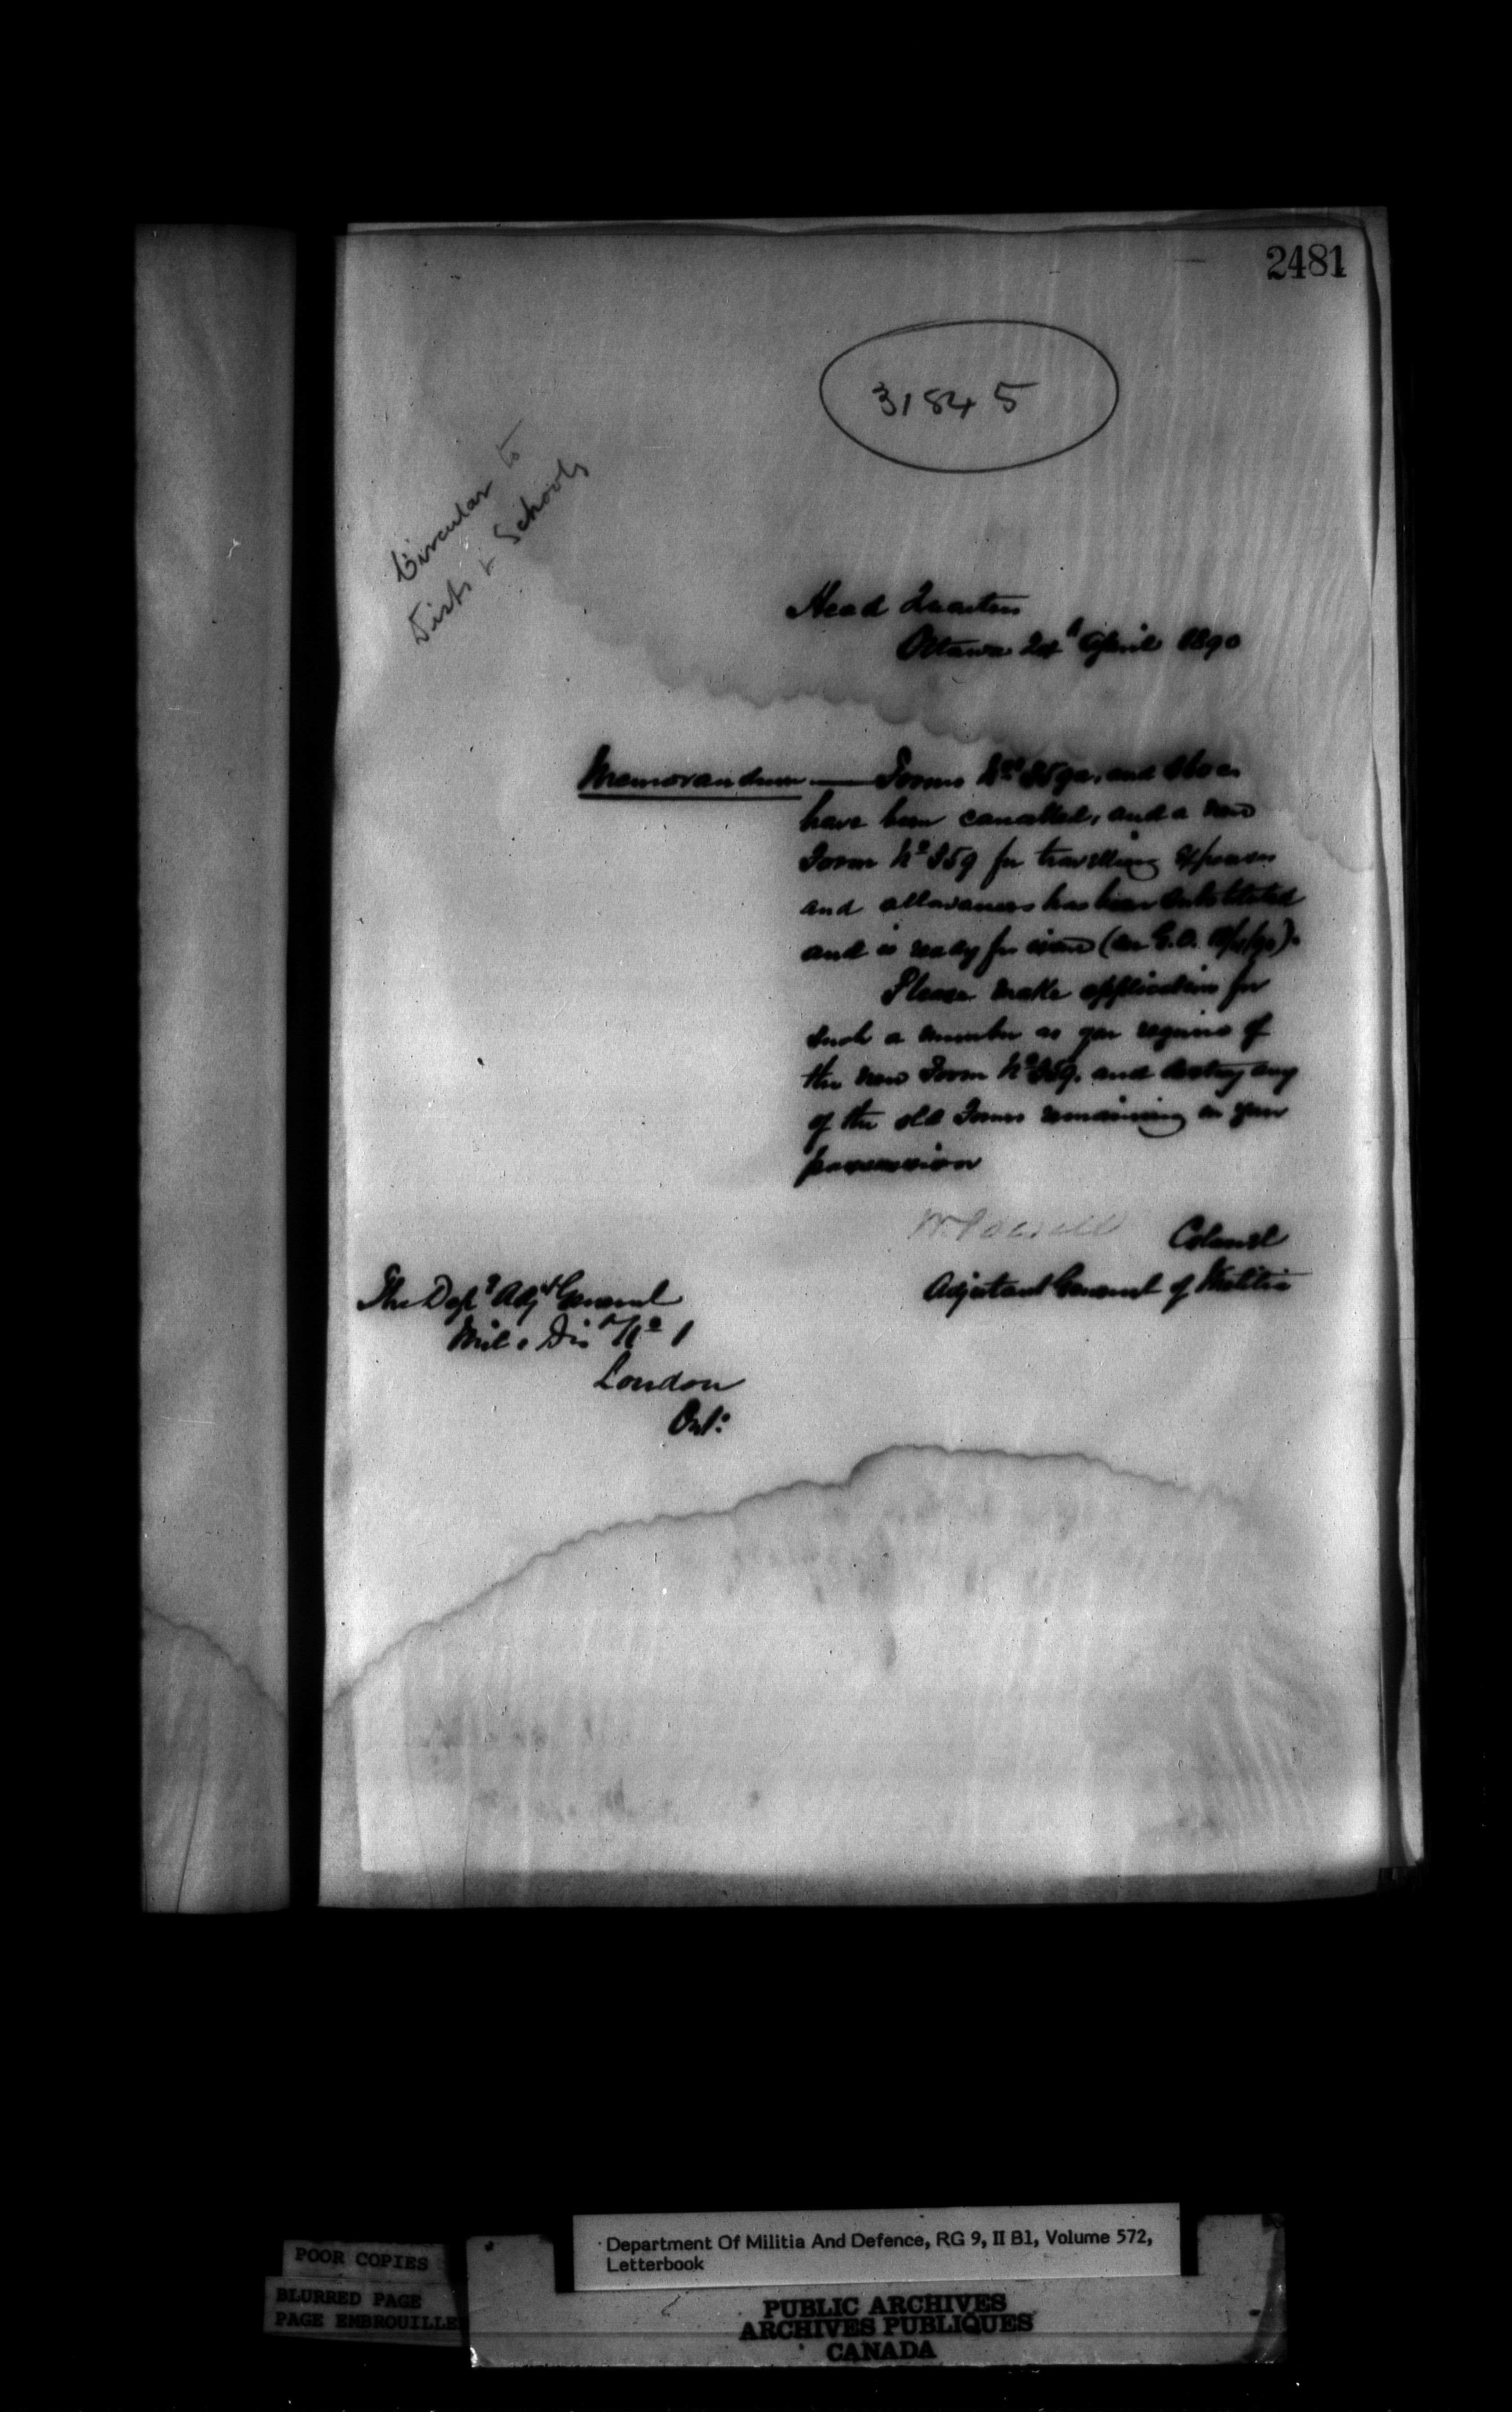 2481
31845
Circular to
Dists & Schools
Head Quarters
Ottawa 24 April 1890
Memorandum — Forms Nos 359a, and
have been cancelled, and a new
Form No 359 for travelling expenses
and allowances has been substituted
and is ready for issue (see G.O.
Please make application for
such a number as you require of
the new Form No 359, and destroy any
of the old Forms remaining in your
possession
W Powell Colonel
Adjutant General of Militia
The Depy Adjt General
Mil: Dist No 1
London
Ont:
Department Of Militia And Defence, RG 9, II B1, Volume 572,
Letterbook
POOR COPIES
BLURRED PAGE
PAGE EMBROUILLE
PUBLIC ARCHIVES
ARCHIVES PUBLIQUES
CANADA